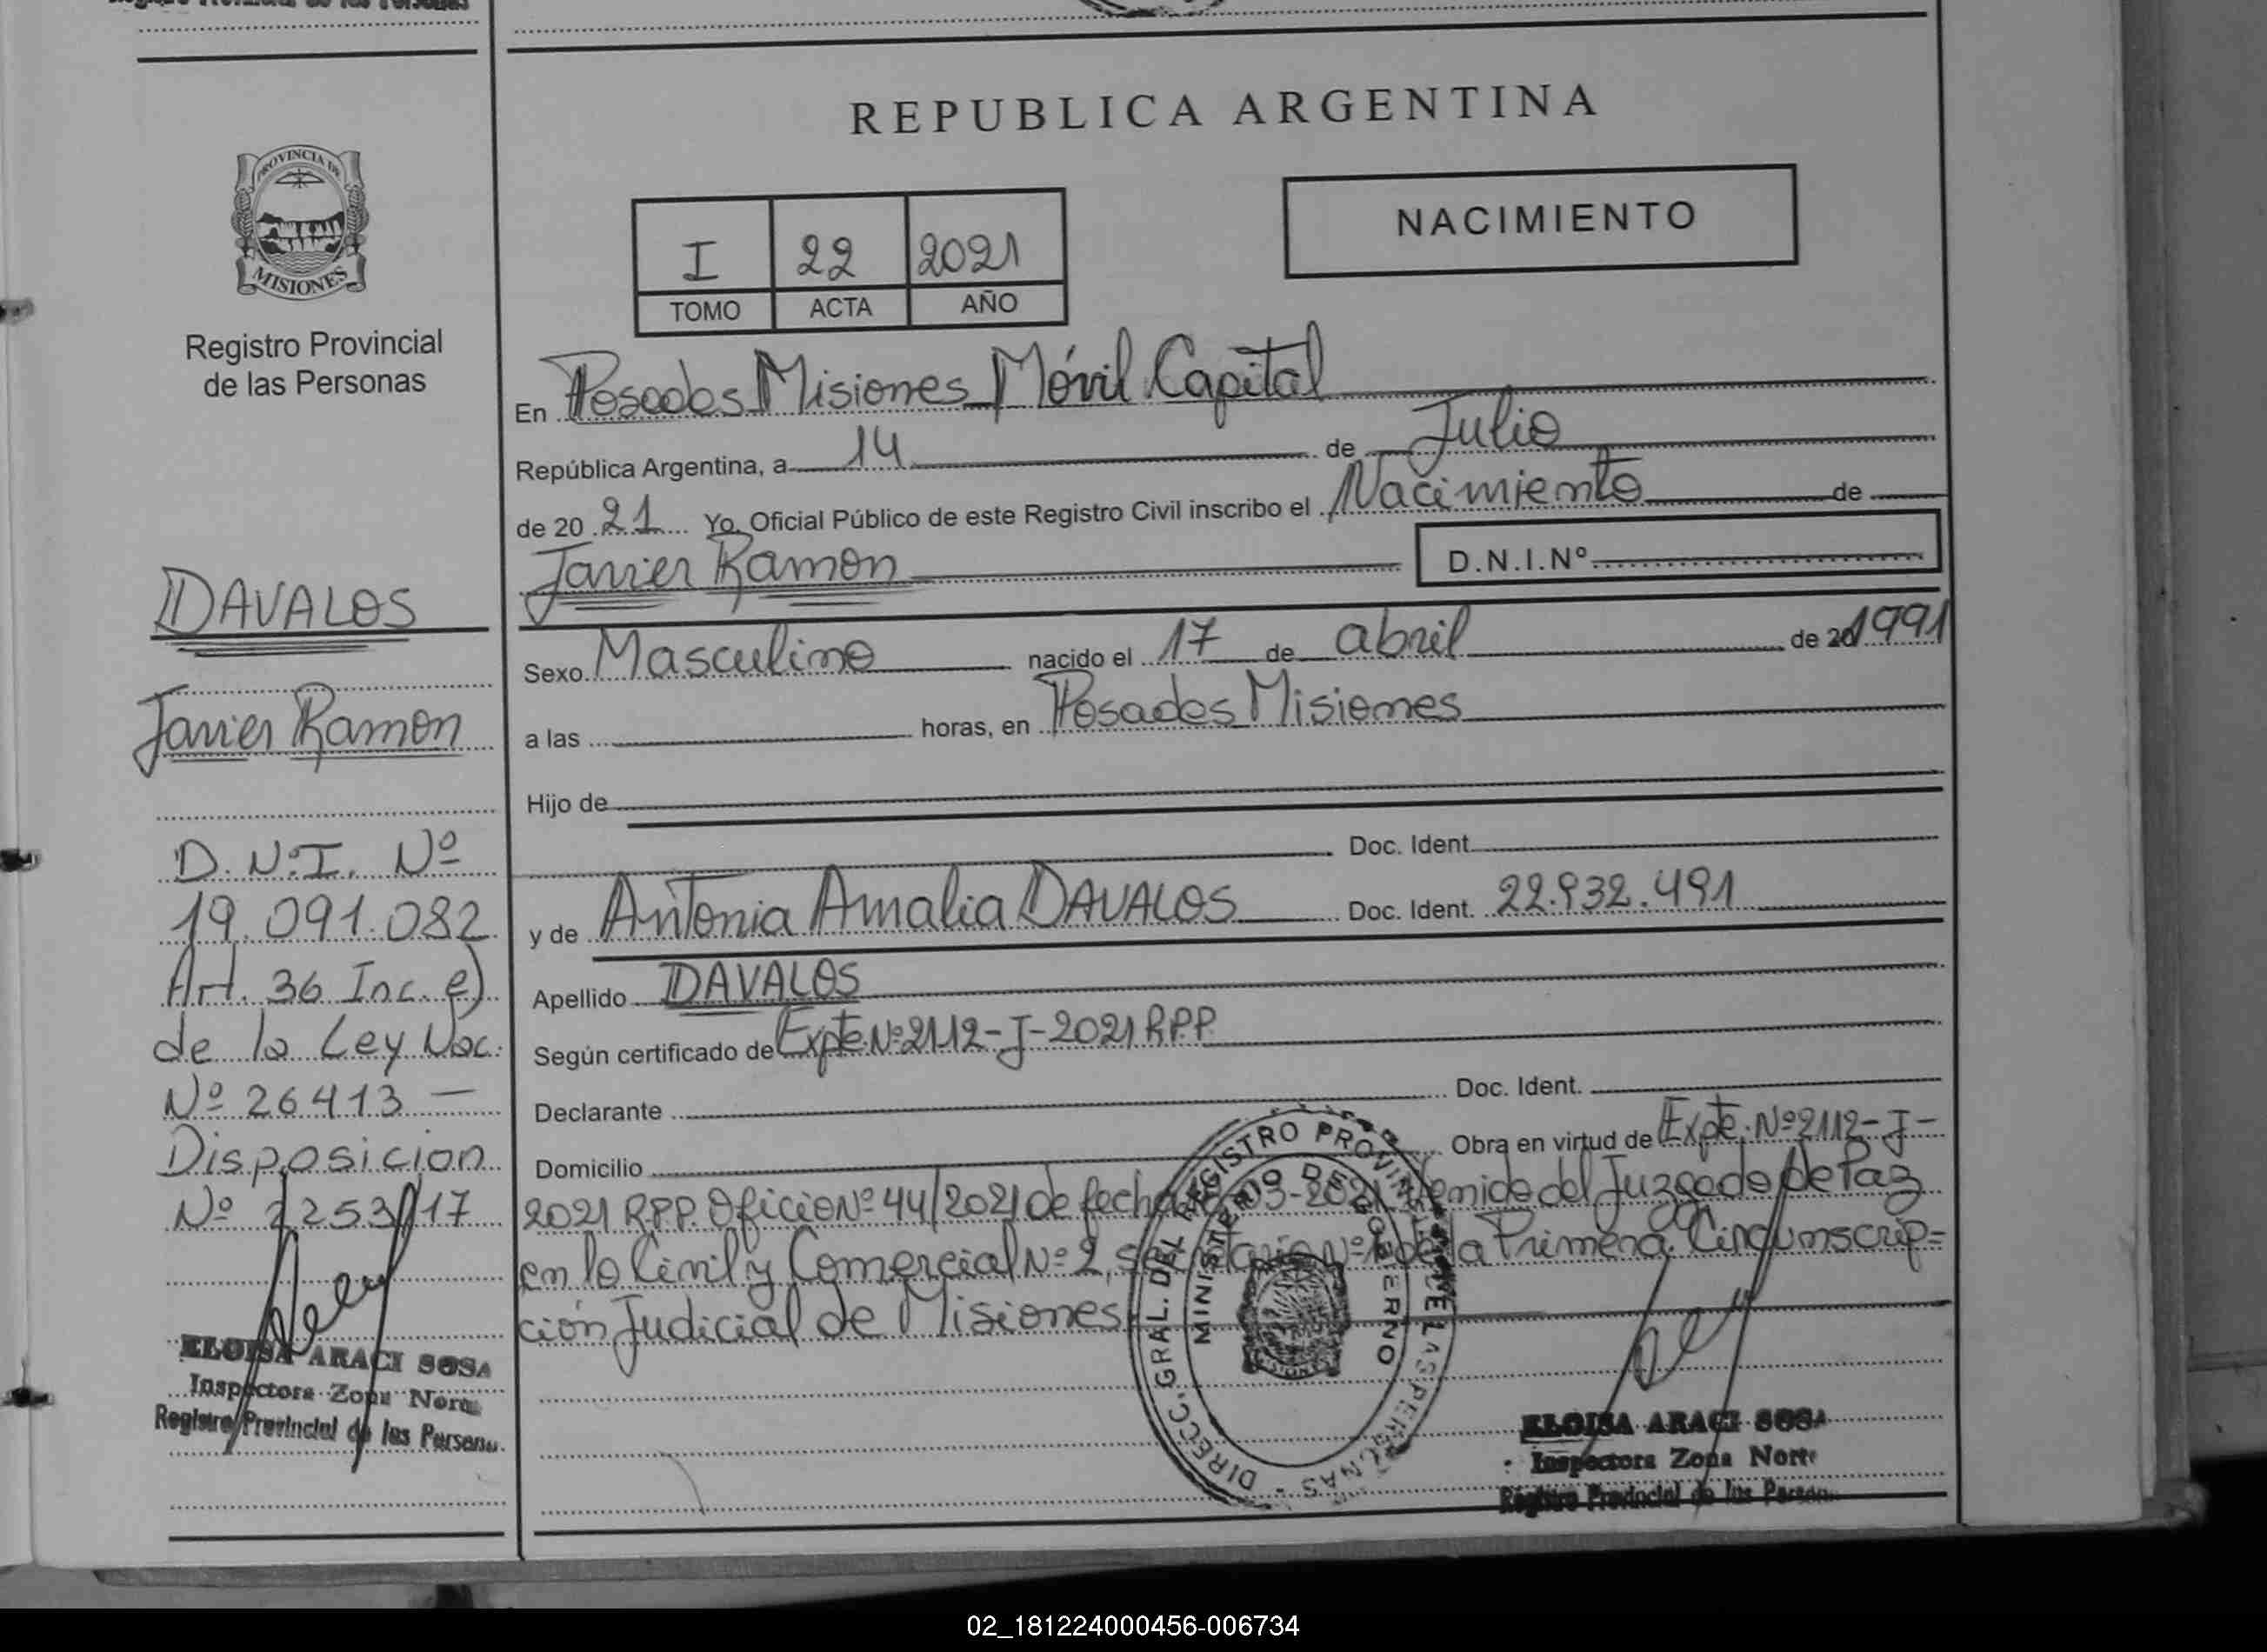 REPUBLICA ARGENTINA
PROVINCIA DE
MISIONES
Registro Provincial
de las Personas
I 22 2021
TOMO ACTA AÑO
NACIMIENTO
En Posadas Misiones Móvil Capital
República Argentina, a 14 de Julio
de 20 21 Yo, Oficial Público de este Registro Civil inscribo el Nacimiento de
Javier Ramon D.N.I.Nº
Sexo Masculino nacido el 17 de abril de 20 1991
a las horas, en Posadas Misiones
Hijo de
Doc. Ident.
y de Antonia Amalia DAVALOS Doc. Ident. 22.932.491
Apellido DAVALOS
Según certificado de Expte.Nº2112-J-2021 R.P.P.
Declarante Doc. Ident.
Domicilio Obra en virtud de Expte. Nº2112-J-
2021 R.P.P. Oficio Nº 44/2021 de fecha 03-2021 venido del Juzgado de Paz
en lo Civil y Comercial Nº 2, secretaria Nº de la Primera Circunscrip=
ción Judicial de Misiones
DAVALOS
Javier Ramon
D.N.I. Nº
19.091.082
Art. 36 Inc. e)
de la Ley Nac.
Nº 26413 —
Disposicion
Nº 2253/17
ELOISA ARACI SOSA
Inspectora Zona Norte
Registro Provincial de las Persona
DIRECC. GRAL. DEL REGISTRO PROVINCIAL DE LAS PERSONAS
MINISTERIO DE GOBIERNO
ELOISA ARACI SOSA
Inspectora Zona Norte
Registro Provincial de las Person
02_181224000456-006734